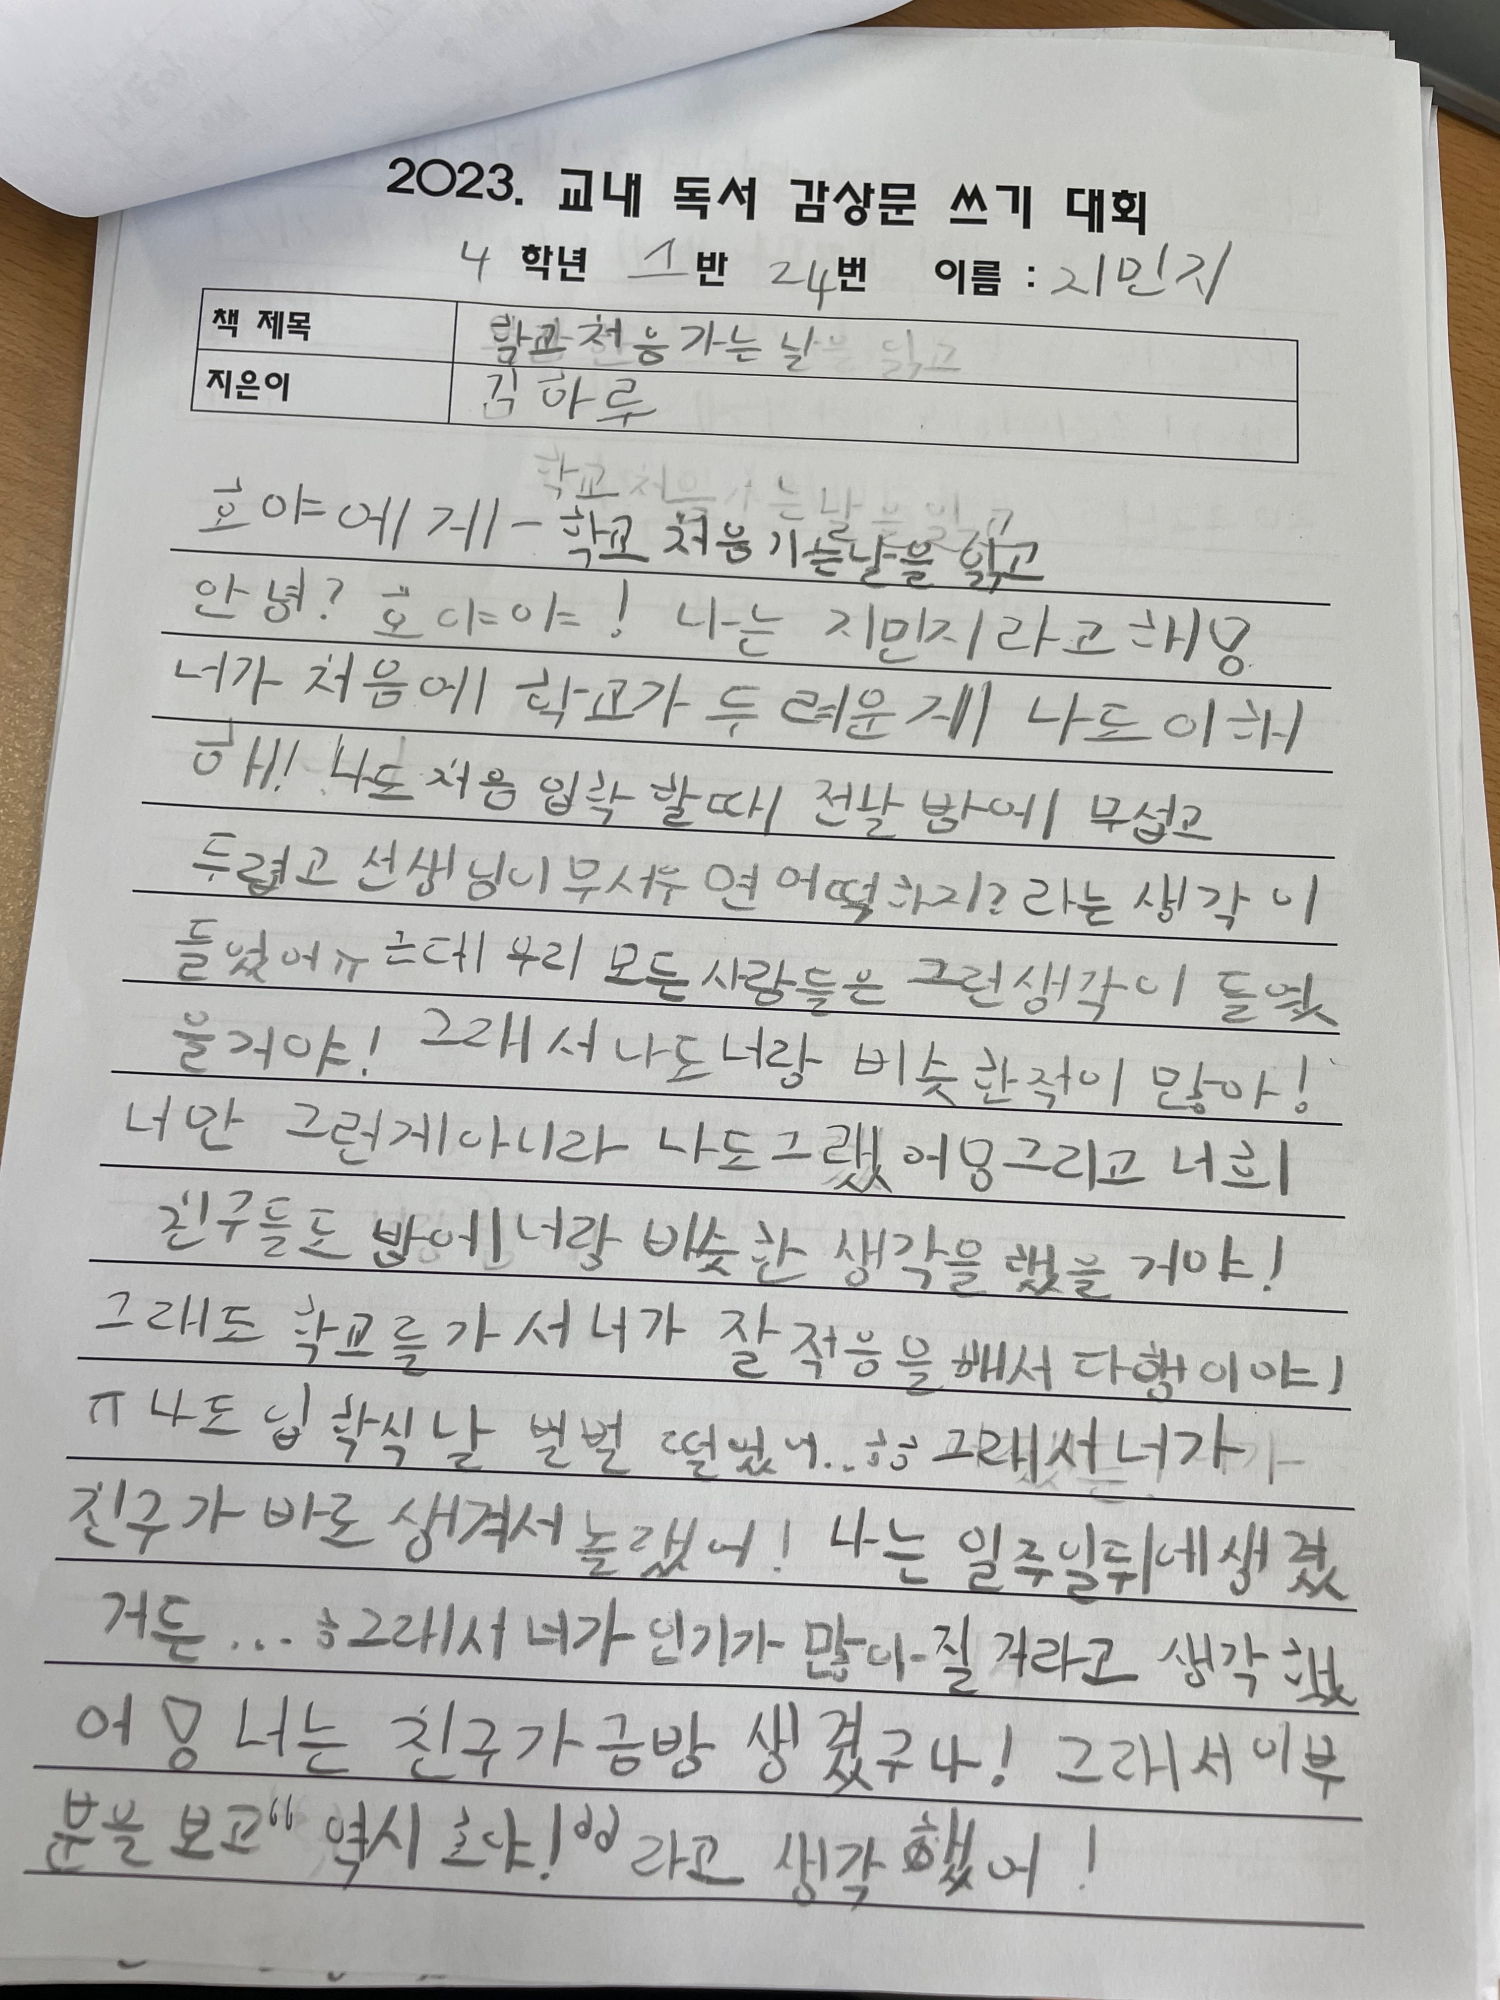 2023. 교내 독서 감상문 쓰기 대회
4 학년 1 반 24번 이름 : 지민지
책 제목 학교 처음 가는 날
지은이 김하루
호야에게 - 학교 처음 가는날을 읽고
안녕? 호야야! 나는 지민지라고해용
너가 처음에 학교가 두려운게 나도 이해
해! 나도 처음 입학 할때 전날 밤에 무섭고
두렵고 선생님이 무서우면 어떡하지? 라는 생각이
들었어ㅠ 근데 우리 모든 사람들은 그런생각이 들었
을거야! 그래서 나도 너랑 비슷한적이 많아!
너만 그런게아니라 나도그랬어용그리고 너희
친구들도 밤에 너랑 비슷한 생각을 했을 거야!
그래도 학교를 가서 너가 잘 적응을 해서 다행이야!
ㅠ 나도 입학식날 벌벌 떨었어..ㅎㅎ 그래서 너가
친구가 바로 생겨서 놀랬어! 나는 일주일뒤에 생겼
거든...ㅎ그래서 너가 인기가 많아질 거라고 생각했
어용 너는 친구가 금방 생겼구나! 그래서 이부
분을 보고 "역시 호야!" 라고 생각 했어!